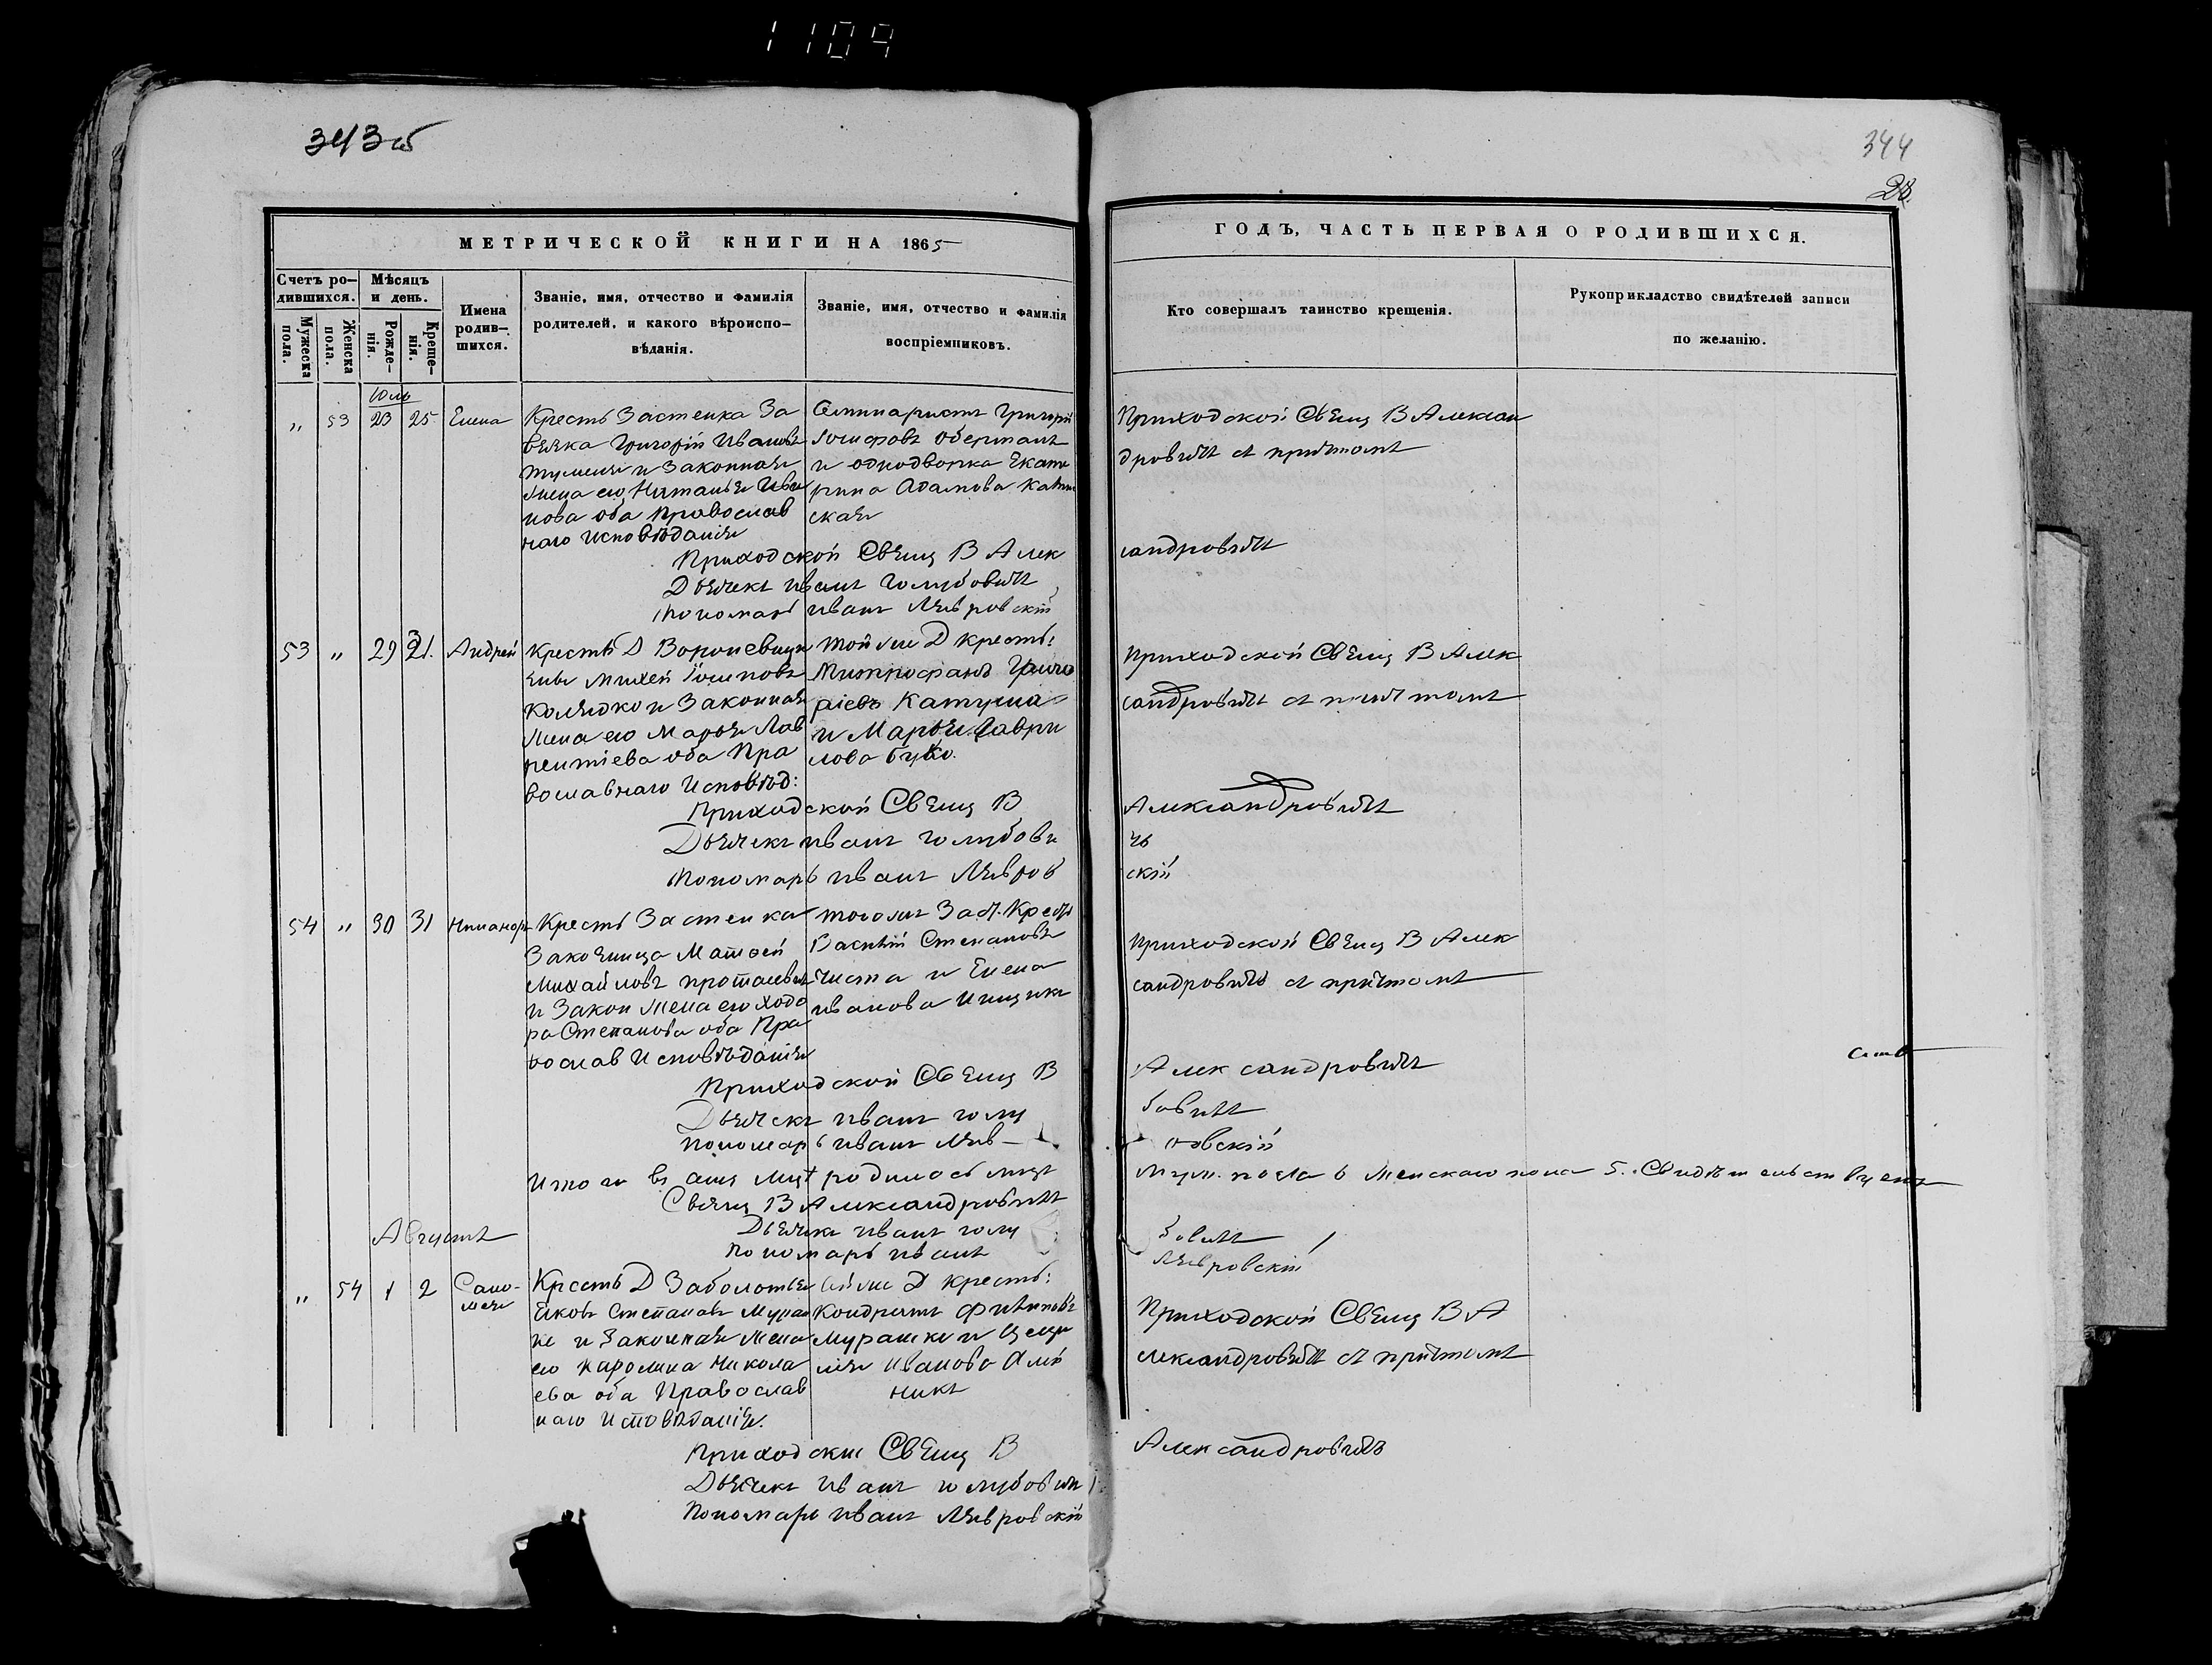 1109
343об
344
28.
МЕТРИЧЕСКОЙ КНИГИ НА 1865
ГОДЪ, ЧАСТЬ ПЕРВАЯ О РОДИВШИХСЯ.
Счетъ ро-
дившихся.
Мужеска
пола.
Женска
пола.
Мѣсяцъ
и день.
Рожде-
нія.
Креще-
нія.
Имена
родив-
шихся.
Званіе, имя, отчество и фамилія
родителей, и какого вѣроиспо-
вѣданія.
Званіе, имя, отчество и фамилія
воспріемниковъ.
Кто совершалъ таинство крещенія.
Рукоприкладство свидѣтелей записи
по желанію.
Юль
„ 53 23 25 Елена
Крестъ Застенка За
Григорій Ивановъ
и Законная
жена его Наталья Ива
нова оба Православ
наго Исповѣданія
Семинаристъ Григорій
Іосифовъ
и однодворка Екате
рина Адамова
ская
Приходской Свящ В Алексан
дровичъ съ причтомъ
Приходской Свящ В Алек
сандровичъ
Дьячекъ Иванъ Голубовичъ
Пономарь Иванъ Лявровскій
53 „ 29 31. Андрей
Крестъ Д Вороневичи
Михей Іосиповъ
и Законная
жена его Марья Лав
рентіева оба Пра
вославнаго Исповѣд:
той же Д крестъ:
Митрофанъ Григо
ріевъ
и Марья Гаври
лова Буко.
Приходской Свящ В Алек
сандровичъ съ причтомъ
Приходской Свящ В
Александровичъ
Дьячекъ Иванъ Голубови
чъ
Пономарь Иванъ Лявров
скій
54 „ 30 31 Никаноръ
Крестъ Застенка
Матѳей
Михайловъ
и Закон жена его Ходо
ра Степанова оба Пра
вослав Исповѣданія
тогожъ Заст. Крестъ
Василій Степановъ
и Елена
Иванова
Приходской Свящ В Алек
сандровичъ съ причтомъ
Приходской Свящ В
Александровичъ
Дьячекъ Иванъ Голу
бовичъ
Пономарь Иванъ Ляв-
ровскій
Итого въ родилось
Муж. пола 6 Женскаго пола 5. Свидѣтельствуемъ
Свящ В Александровичъ
Дьячекъ Иванъ Голу
бовичъ
Пономарь Иванъ
Лявровскій
Августъ
„ 54 1 2 Сало-
мея
Крестъ Д Заболотья
Яковъ Степановъ Мураш
ко и Законная жена
его Каролина Никола
ева оба Православ
наго Исповѣданія.
той же Д крестъ:
Кондратъ Филиповъ
Мурашко и Цеци
лія Иванова Алей
никъ
Приходской Свящ В А
лександровичъ съ причтомъ
Приходскій Свящ В
Александровичъ
Дьячекъ Иванъ Голубовичъ
Пономарь Иванъ Лявровскій